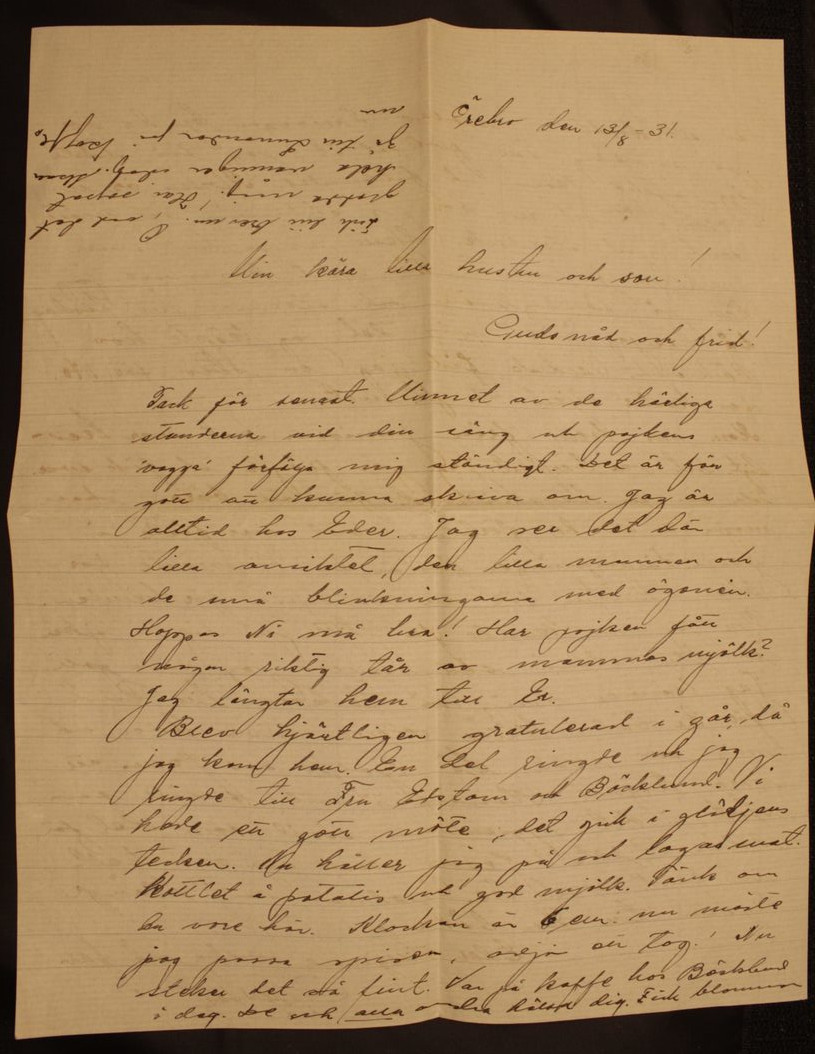 Örebro den 13/8 - 31.
Min kära lilla hustru och son!
Guds nåd och frid!
Tack för senast. Minnet av de härliga
stunderna vid din säng och pojkens
'vagga' förfölja mig ständigt. Det är för
gott att kunna skriva om. Jag är
alltid hos Eder. Jag ser det där
lilla ansiktet, den lilla munnen och
de små blinkningarna med ögonen.
Hoppas Ni må bra! Har pojken fått
någon riktig tår av mammas mjölk?
Jag längtar hem till Er.
Blev hjärtligen gratulerad i går, då
jag kom hem. En del ringde och jag
ringde till Fru Edstam och Bäcklund. Vi
hade ett gott möte, det gick i glädjens
tecken. Nu håller jag på och lagar mat.
Kottlet å potatis och god mjölk. Tänk om
du vore här. Klockan är 6 em. nu måste
jag passa spisen, adjö ett tag! Nu
steker det så fint. Var på kaffe hos Bäcklund
i dag. De och alla andra hälsa dig. Fick blommor
och ditt brev nu. O, vad det
gladde mig! Har sopat
hela våningen idag.
gå till på kaffe,
nu